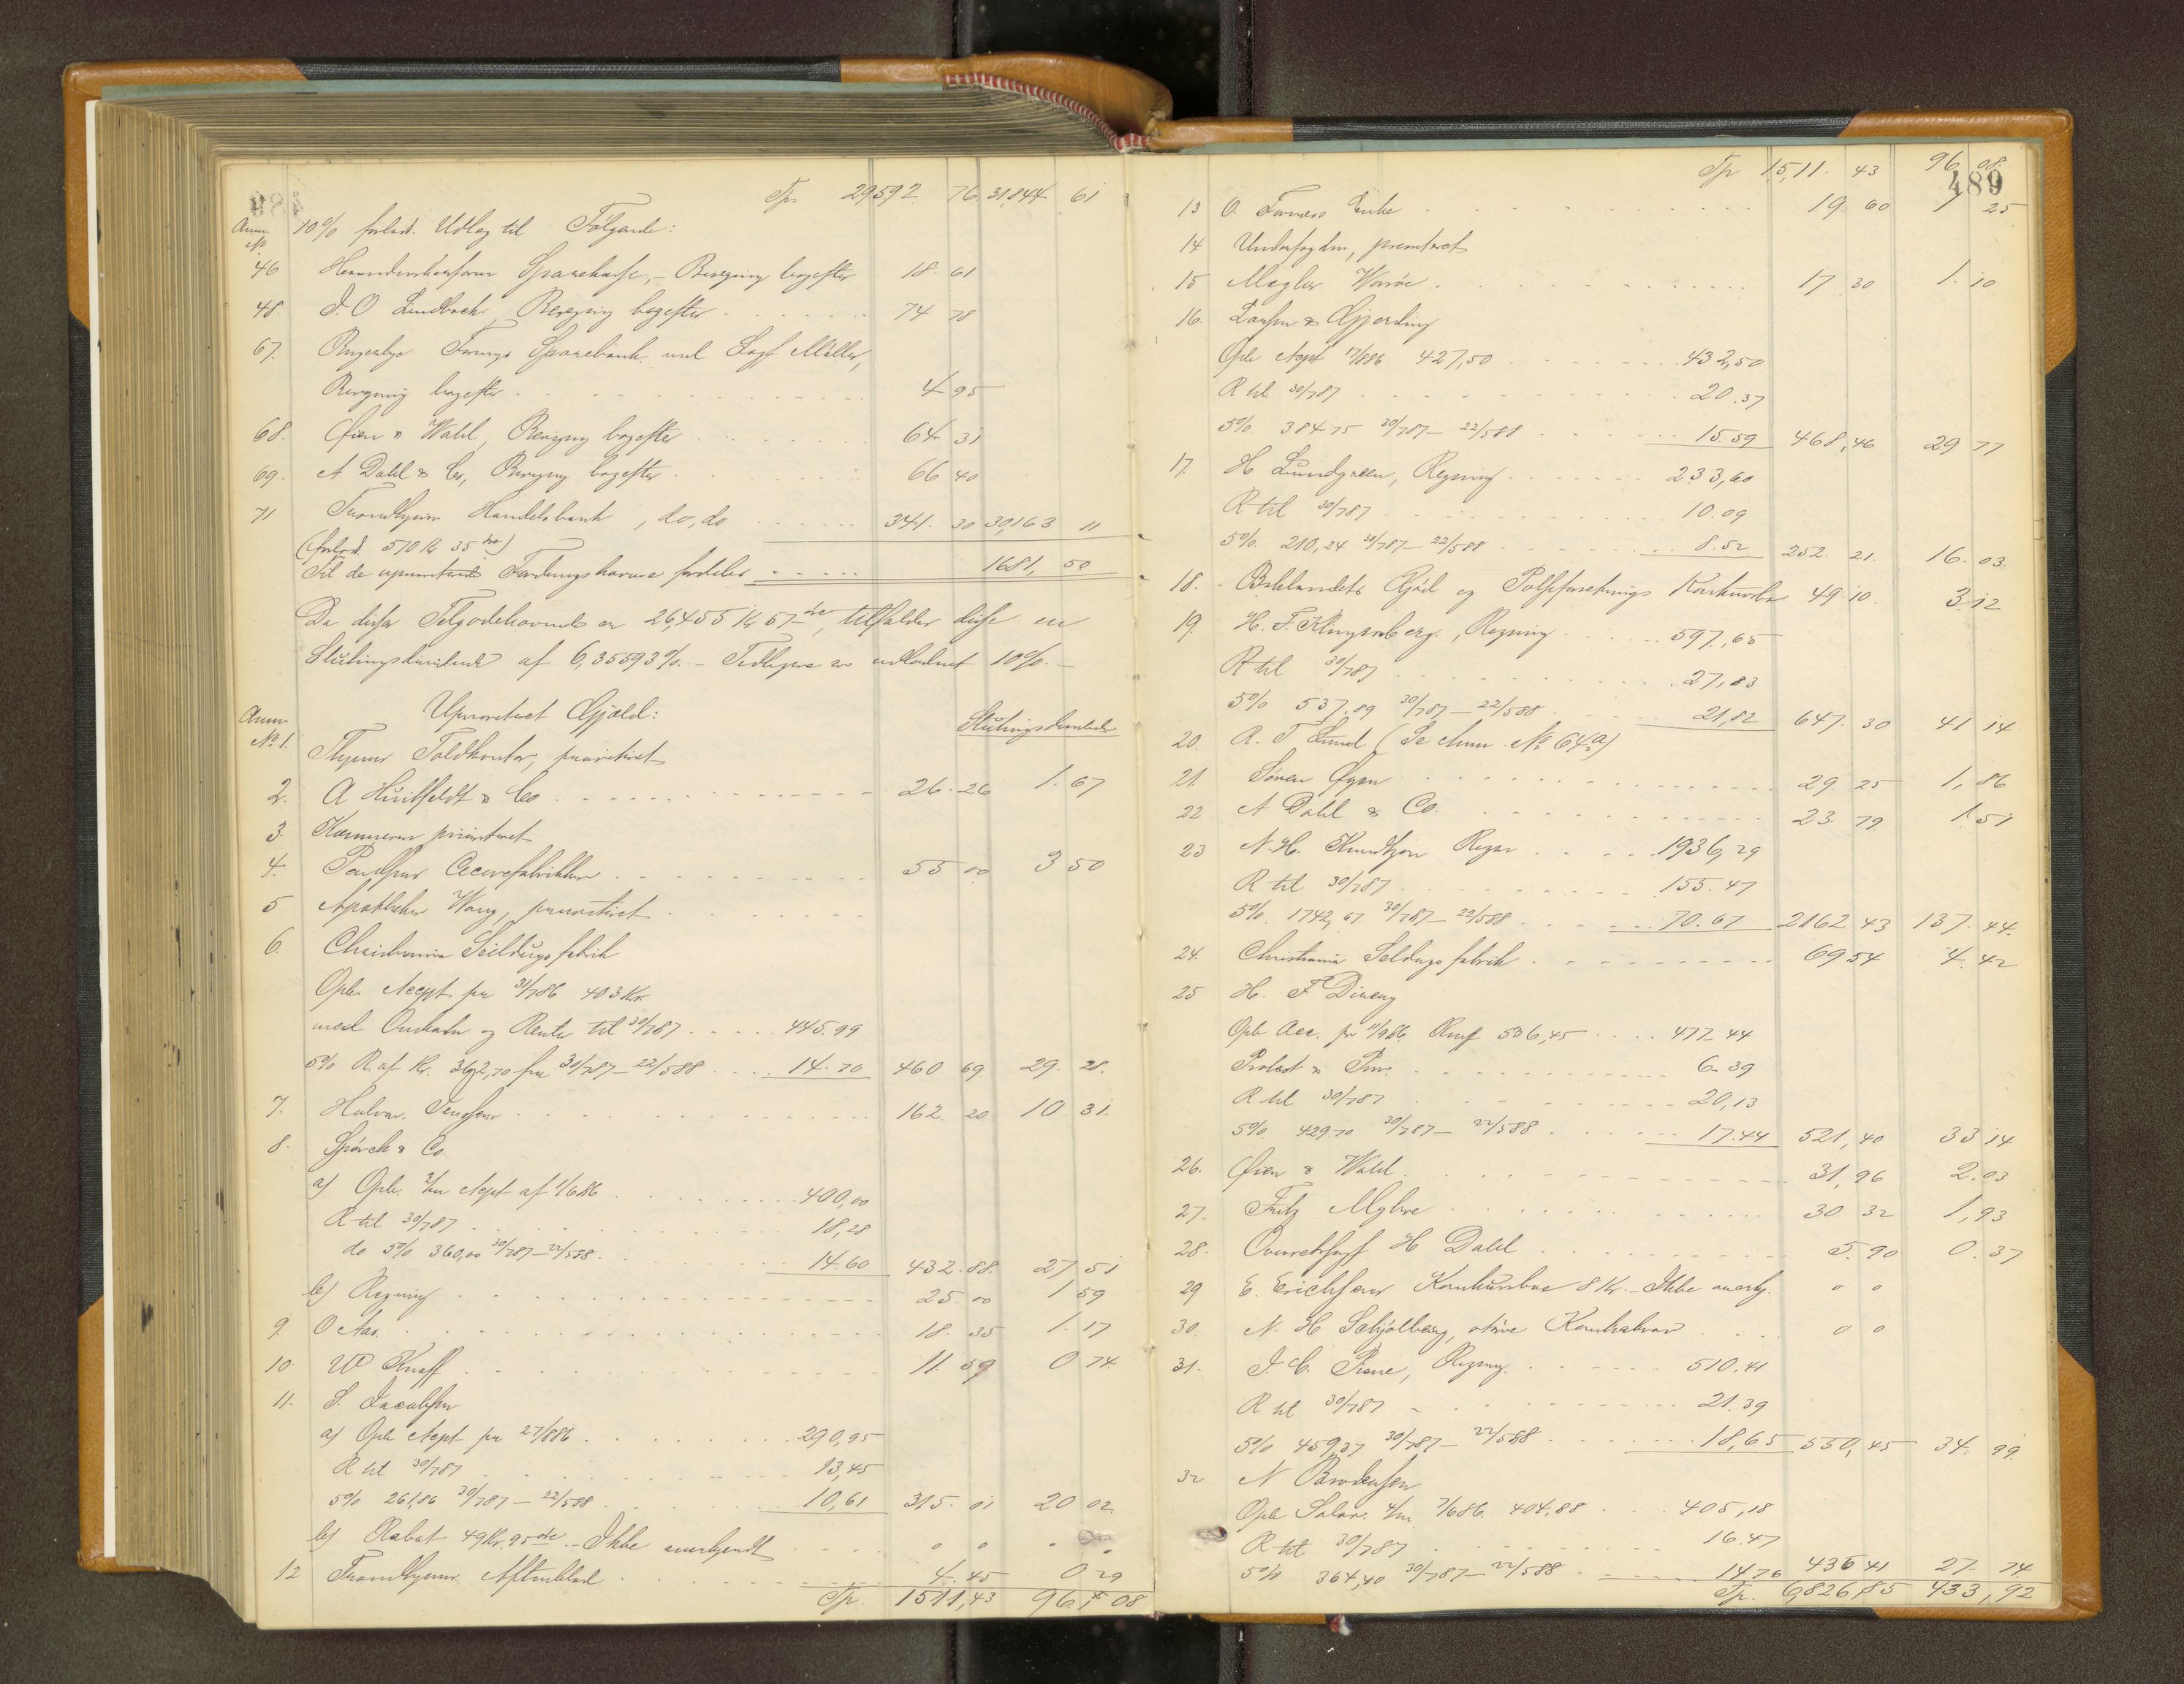 Tp. 29592 76 31,844 61
Anm. No. 10% forlods Udlæg til Følgende:
46 Sparekasse, - Beregning bagefter 18. 61
48. J. O Lindbach, Beregning bagefter 74 78
67. Sparebank ved Sagf Müller,
Beregning bagefter 4 95
68. Øien & Wahl, Beregning bagefter 64 31
69. A Dahl & Co, Beregning bagefter 66 40
71 Trondhjems Handelsbank, do, do 341. 30 30,163 11
(forlods 570 Kr 35 øre)
Til de uprioriterede Fordringshavere fordeles 1681, 50
Da disses Tilgodehavende er 26,455 Kr 57 øre, tilfalder disse en
Slutningsdividende af 6,35593%. - Tidligere er udloddet 10%. -
Anm. Uprioriteret Gjæld: Slutningsdividende
No 1. Thjems Toldkontor, prioriteret
2. A Huitfeldt & Co 26. 26 1. 67
3. Kæmneren prioriteret
4. 55 00 3 50
5 Apotheker Wang, prioriteret
6. Christiania Seildugsfabrik
Opr. Accept pr 31/786 403 Kr.
med Omkostn og Rente til 30/787 445.99
5% R af Kr. 362,70 fra 30/787 - 22/588 14.70 460 69. 29. 28.
7. Halvor Jenssen 162. 20 10 31.
8. Spörck & Co.
a) Opr. Acpt af 1/686 400,00
R til 30/787 18,28
do 5% 360,00 30/787 - 22/588 14.60 432.88. 27 51
b) Regning 25. 00 1 59
9. O Aas. 18. 35 1. 17
10. W Knoff 11. 59 0 74.
11. S. Jacobsen
a) Opr Acpt pr 27/886 290,95
R til 30/787 13,45
5% 261,86 30/787 - 22/588 10,61 315. 01 20 02.
b) Rabat 49 Kr. 95 øre. - Ikke anerkjendt 0 0
12 Trondhjems Aftenblad 4. 45 0 29
Tp. 1511,43 96. 08
Tp 15,11. 43 96 08
489
13 O. Enke 19. 60 1 25
14 Underfogden, prioriteret
15 Mægler 17 30 1. 10
16. Larsen & Gjerding
Opr Acpt 17/886 427,50 432,50
R til 30/787 20.37
5% 384.75 30/787 - 22/588 15.59 468,46 29 77
17. H Lundgreen, Regning 233,60
R til 30/787 10.09
5% 210,24 30/787 - 22/588 8.52 252. 21. 16. 03.
18. Baklandets 49 10. 3 12
19. H. F. Klingenberg, Regning 597,65
R til 30/787 27,83
5% 537.89 30/787 - 22/588 21,82 647. 30 41 14
20. R. T Lund (Se Anm. No 64a)
21. Søren Øyen 29. 25 1, 86
22 A Dahl & Co. 23. 79. 1. 51
23 N. H. Knudtzon Regn 1936,29
R til 30/787 155.47
5% 1742,67. 30/787 - 22/588 70.67 2162 43 137. 44.
24. Christiania Seldugsfabrik 69 54 4. 42
25 H. F
Opr Acc. pr 11/986 536,45 477.44
Protest & Prov. 6.39
R til 30/787 20,13
5% 429.70 30/787 - 22/588 17.44 521,40 33 14
26. Øien & Wahl 31,96 2.03
27. Fritz Myhre 30 32 1,93
28. Overretssagf H Dahl 5. 90 0. 37
29 E. Erichsens Konkursbo 8 Kr. - Ikke anerkj. 0 0
30. N. H Schjølberg, 0 0
31. I. C. Piene, Regning 510.41
R til 30/787 21.39
5% 459,37 30/787 - 22/588 18,65 550,45 34. 99.
32 N Brodersen
Opr 7/686. 404.88 405,18
R til 30/787 16.47
5% 364,40 30/787 - 22/588 14 76 436 41 27. 74.
Tp. 6,826,85 433,92